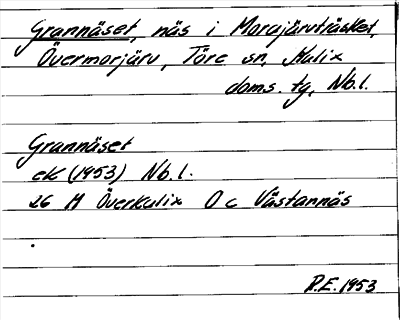 Grannäset, näs i Morajärvträsket,
Övermorjärv, Töre sn, Kalix
doms. tg, Nb.l.
Grannäset
ek (1953) Nb.l.
26 M Överkalix O c Västannäs
R.E. 1953